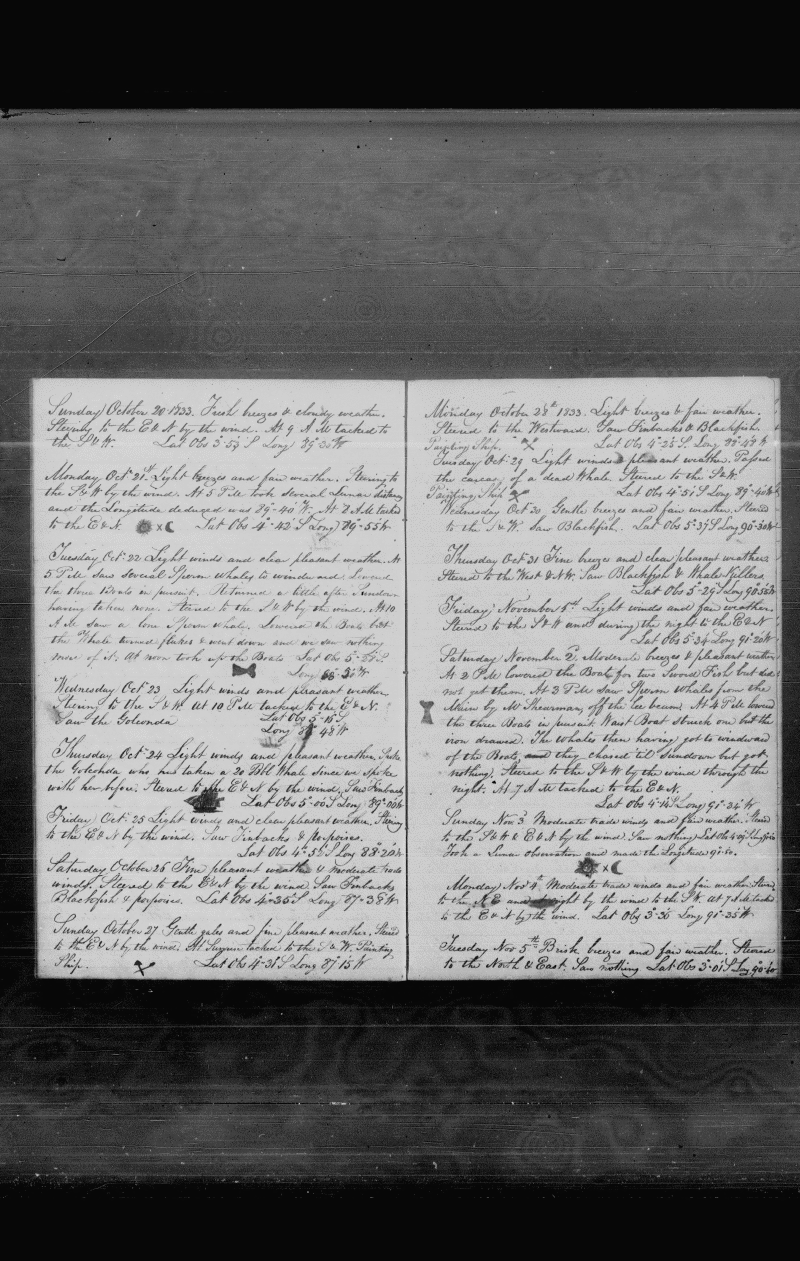 Sunday October 20 1833. Fresh breezes & cloudy weather.
Steering to the E & N by the wind. At 9 A M tacked to
the S & W. Lat Obs 3°-53' S Long 89°-30 W
Monday Oct 21st Light breezes and fair weather. Steering to
the S & W by the wind. At 5 P M took several Lunar distances
and the Longitude deduced was 89°-40 W. At 8 A M tacked
to the E & N. Lat Obs 4°-42 S Long 89°-55 W
Tuesday Oct 22 Light winds and clear pleasant weather. At
5 P M saw several Sperm whales to windward Lowered
the three Boats in pursuit. Returned a little after Sundown
having taken none. Steered to the S & W by the wind. At 10
A M saw a lone Sperm whale. Lowered the Boats but
the Whale turned flukes & went down and we saw nothing
more of it. At noon took up the Boats Lat Obs 5°- S.
Long W
Wednesday Oct 23 Light winds and pleasant weather
Steering to the S & W. At 10 P M tacked to the E & N.
Saw the Golconda Lat Obs 5-15 S
Long 48 W
Thursday Oct 24 Light winds and pleasant weather. Spoke
the Golconda who has taken a 20 Bbl Whale since we spoke
with her before. Steered to the E & N by the wind. Saw Finbacks
Lat Obs 5-06 S Long 89°-00 W
Friday Oct. 25 Light winds and clear pleasant weather. Steering
to the E & N by the wind. Saw Finbacks & porpoises.
Lat Obs 4°-5 S Long 88°-20 W
Saturday October 26 Fine pleasant weather & moderate trade
winds. Steered to the E & N by the wind Saw Finbacks
Blackfish & porpoises. Lat Obs 4°-35 S Long 87-38 W.
Sunday October 27 Gentle gales and fine pleasant weather. Steered
to the E & N by the wind. At Sunrise tacked to the S & W. Painting
Ship. Lat Obs 4-31 S Long 87°15 W
Monday October 28th 1833. Light breezes & fair weather.
Steered to the Westward. Saw Finbacks & Blackfish.
Painting Ship. Lat Obs 4°-25 S. Long 88-48 W
Tuesday Oct 29 Light winds & pleasant weather. Passed
the carcas of a dead Whale. Steered to the S & W.
Painting Ship Lat Obs 4°-51 S Long 89°-40 W
Wednesday Oct 30 Gentle breezes and fair weather. Steered
to the S & W. Saw Blackfish. Lat Obs 5-37 S Long 90°-30 W
Thursday Oct 31 Fine breezes and clear pleasant weather.
Steered to the West & N W. Saw Blackfish & Whale Killers
Lat Obs 5-29 S Long 90°55 W
Friday November 1st Light winds and fair weather.
Steered to the S & W and during the night to the E & N
Lat Obs 5-34 Long 91°-20 W
Saturday November 2d Moderate breezes & pleasant weather
At 2 P M lowered the Boats for two Sword Fish but did
not get them. At 3 P M Saw Sperm Whales from the
Main by Mr Shearman, off the Lee beam. At 4 P M lowered
the three Boats in pursuit. Waist Boat struck one but the
iron drawed. The whales then having got to windward
of the Boats, and they chased til Sundown but got
nothing. Steered to the S & W by the wind through the
night. At 7 A M tacked to the E & N.
Lat Obs 4- S Long 91°-24 W
Sunday Nov 3d Moderate trade winds and fair weather. Steered
to the S & W & E & N by the wind. Saw nothing Lat Obs
Took a Lunar observation and made the Longitude 91-30.
Monday Nov 4th Moderate trade winds and fair weather Steered
to the N E and by the wind to the S W. At 7 A M tacked
to the E & N by the wind. Lat Obs 3°-30 Long 91°-35 W.
Tuesday Nov 5th Brisk breezes and fair weather. Steered
to the North & East. Saw nothing Lat Obs 3°-01 S Long 90